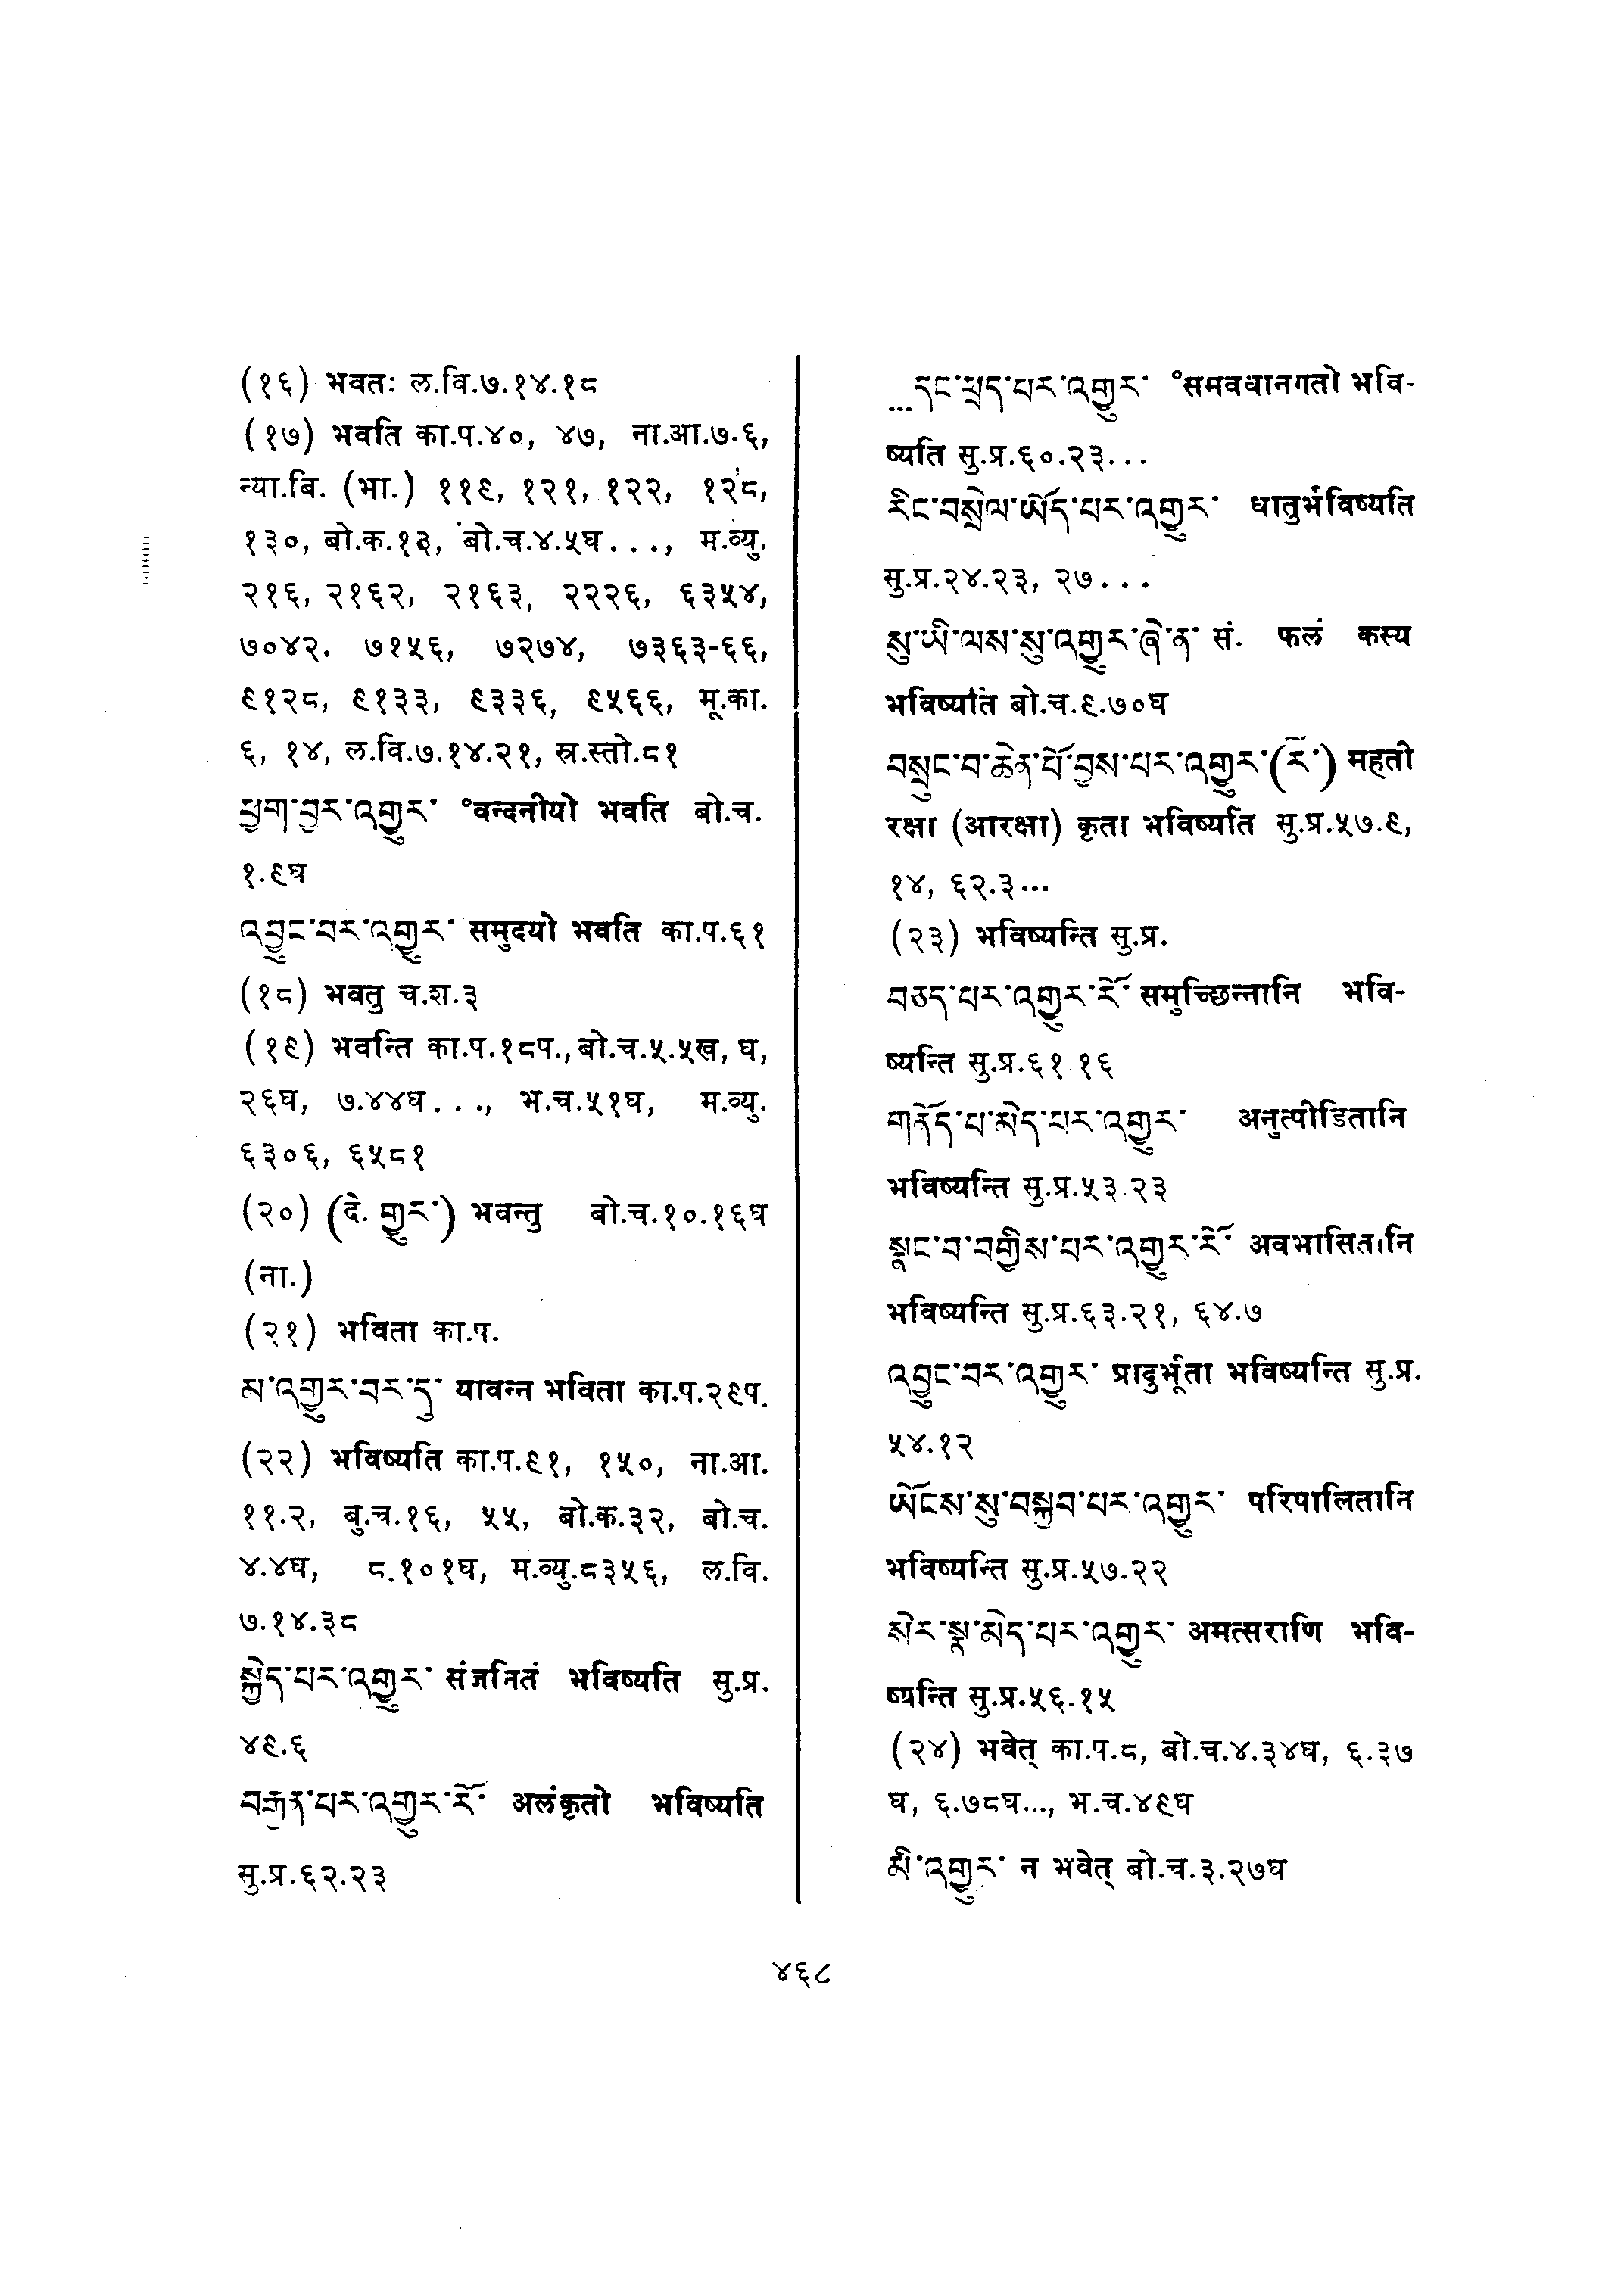 (१६) भवतः ल.वि.७.१४.१८
(१७) भवति का.प.४०, ४७, ना.आ.७.६,
न्या.बि. (भा.) ११९, १२१, १२२, १२८,
१३०, बो.क.१३, बो.च.४.५घ..., म.व्यु.
२१६, २१६२, २१६३, २२२६, ६३५४,
७०४२. ७१५६, ७२७४, ७३६३-६६,
९१२८, ९१३३, ९३३६, ९५६६, मू.का.
६, १४, ल.वि.७.१४.२१, स्र.स्तो.८१
ཕྱག་བྱར་འགྱུར་ °वन्दनीयो भवति बो.च.
१.९घ
འབྱུང་བར་འགྱུར་ समुदयो भवति का.प.६१
(१८) भवतु च.श.३
(१९) भवन्ति का.प.१८प., बो.च.५.५ख, घ,
२६घ, ७.४४घ..., भ.च.५१घ, म.व्यु.
६३०६, ६५८१
(२०) (दे. གྱུར་) भवन्तु बो.च.१०.१६घ
(ना.)
(२१) भविता का.प.
མ་འགྱུར་བར་དུ་ यावन्न भविता का.प.२९प.
(२२) भविष्यति का.प.९१, १५०, ना.आ.
११.२, बु.च.१६, ५५, बो.क.३२, बो.च.
४.४घ, ८.१०१घ, म.व्यु.८३५६, ल.वि.
७.१४.३८
སྐྱེད་པར་འགྱུར་ संजनितं भविष्यति सु.प्र.
४९.६
བརྒྱན་པར་འགྱུར་རོ་ अलंकृतो भविष्यति
सु.प्र.६२.२३
...དང་ཕྲད་པར་འགྱུར་ °समवधानगतो भवि-
ष्यति सु.प्र.६०.२३...
རིང་བསྲེལ་ཡོད་པར་འགྱུར་ धातुर्भविष्यति
सु.प्र.२४.२३, २७...
སུ་ཡི་ལས་སུ་འགྱུར་ཞེ་ན་ सं. फलं कस्य
भविष्यति बो.च.९.७०घ
བསྲུང་བ་ཆེན་པོ་བྱས་པར་འགྱུར་(རོ་) महती
रक्षा (आरक्षा) कृता भविष्यति सु.प्र.५७.९,
१४, ६२.३...
(२३) भविष्यन्ति सु.प्र.
བཅད་པར་འགྱུར་རོ་ समुच्छिन्नानि भवि-
ष्यन्ति सु.प्र.६१.१६
གནོད་པ་མེད་པར་འགྱུར་ अनुत्पीडितानि
भविष्यन्ति सु.प्र.५३.२३
སྣང་བ་བགྱིས་པར་འགྱུར་རོ་ अवभासितानि
भविष्यन्ति सु.प्र.६३.२१, ६४.७
འབྱུང་བར་འགྱུར་ प्रादुर्भूता भविष्यन्ति सु.प्र.
५४.१२
ཡོངས་སུ་བསྐྱབ་པར་འགྱུར་ परिपालितानि
भविष्यन्ति सु.प्र.५७.२२
སེར་སྣ་མེད་པར་འགྱུར་ अमत्सराणि भवि-
ष्यन्ति सु.प्र.५६.१५
(२४) भवेत् का.प.८, बो.च.४.३४घ, ६.३७
घ, ६.७८घ..., भ.च.४९घ
མི་འགྱུར་ न भवेत् बो.च.३.२७घ
४६८